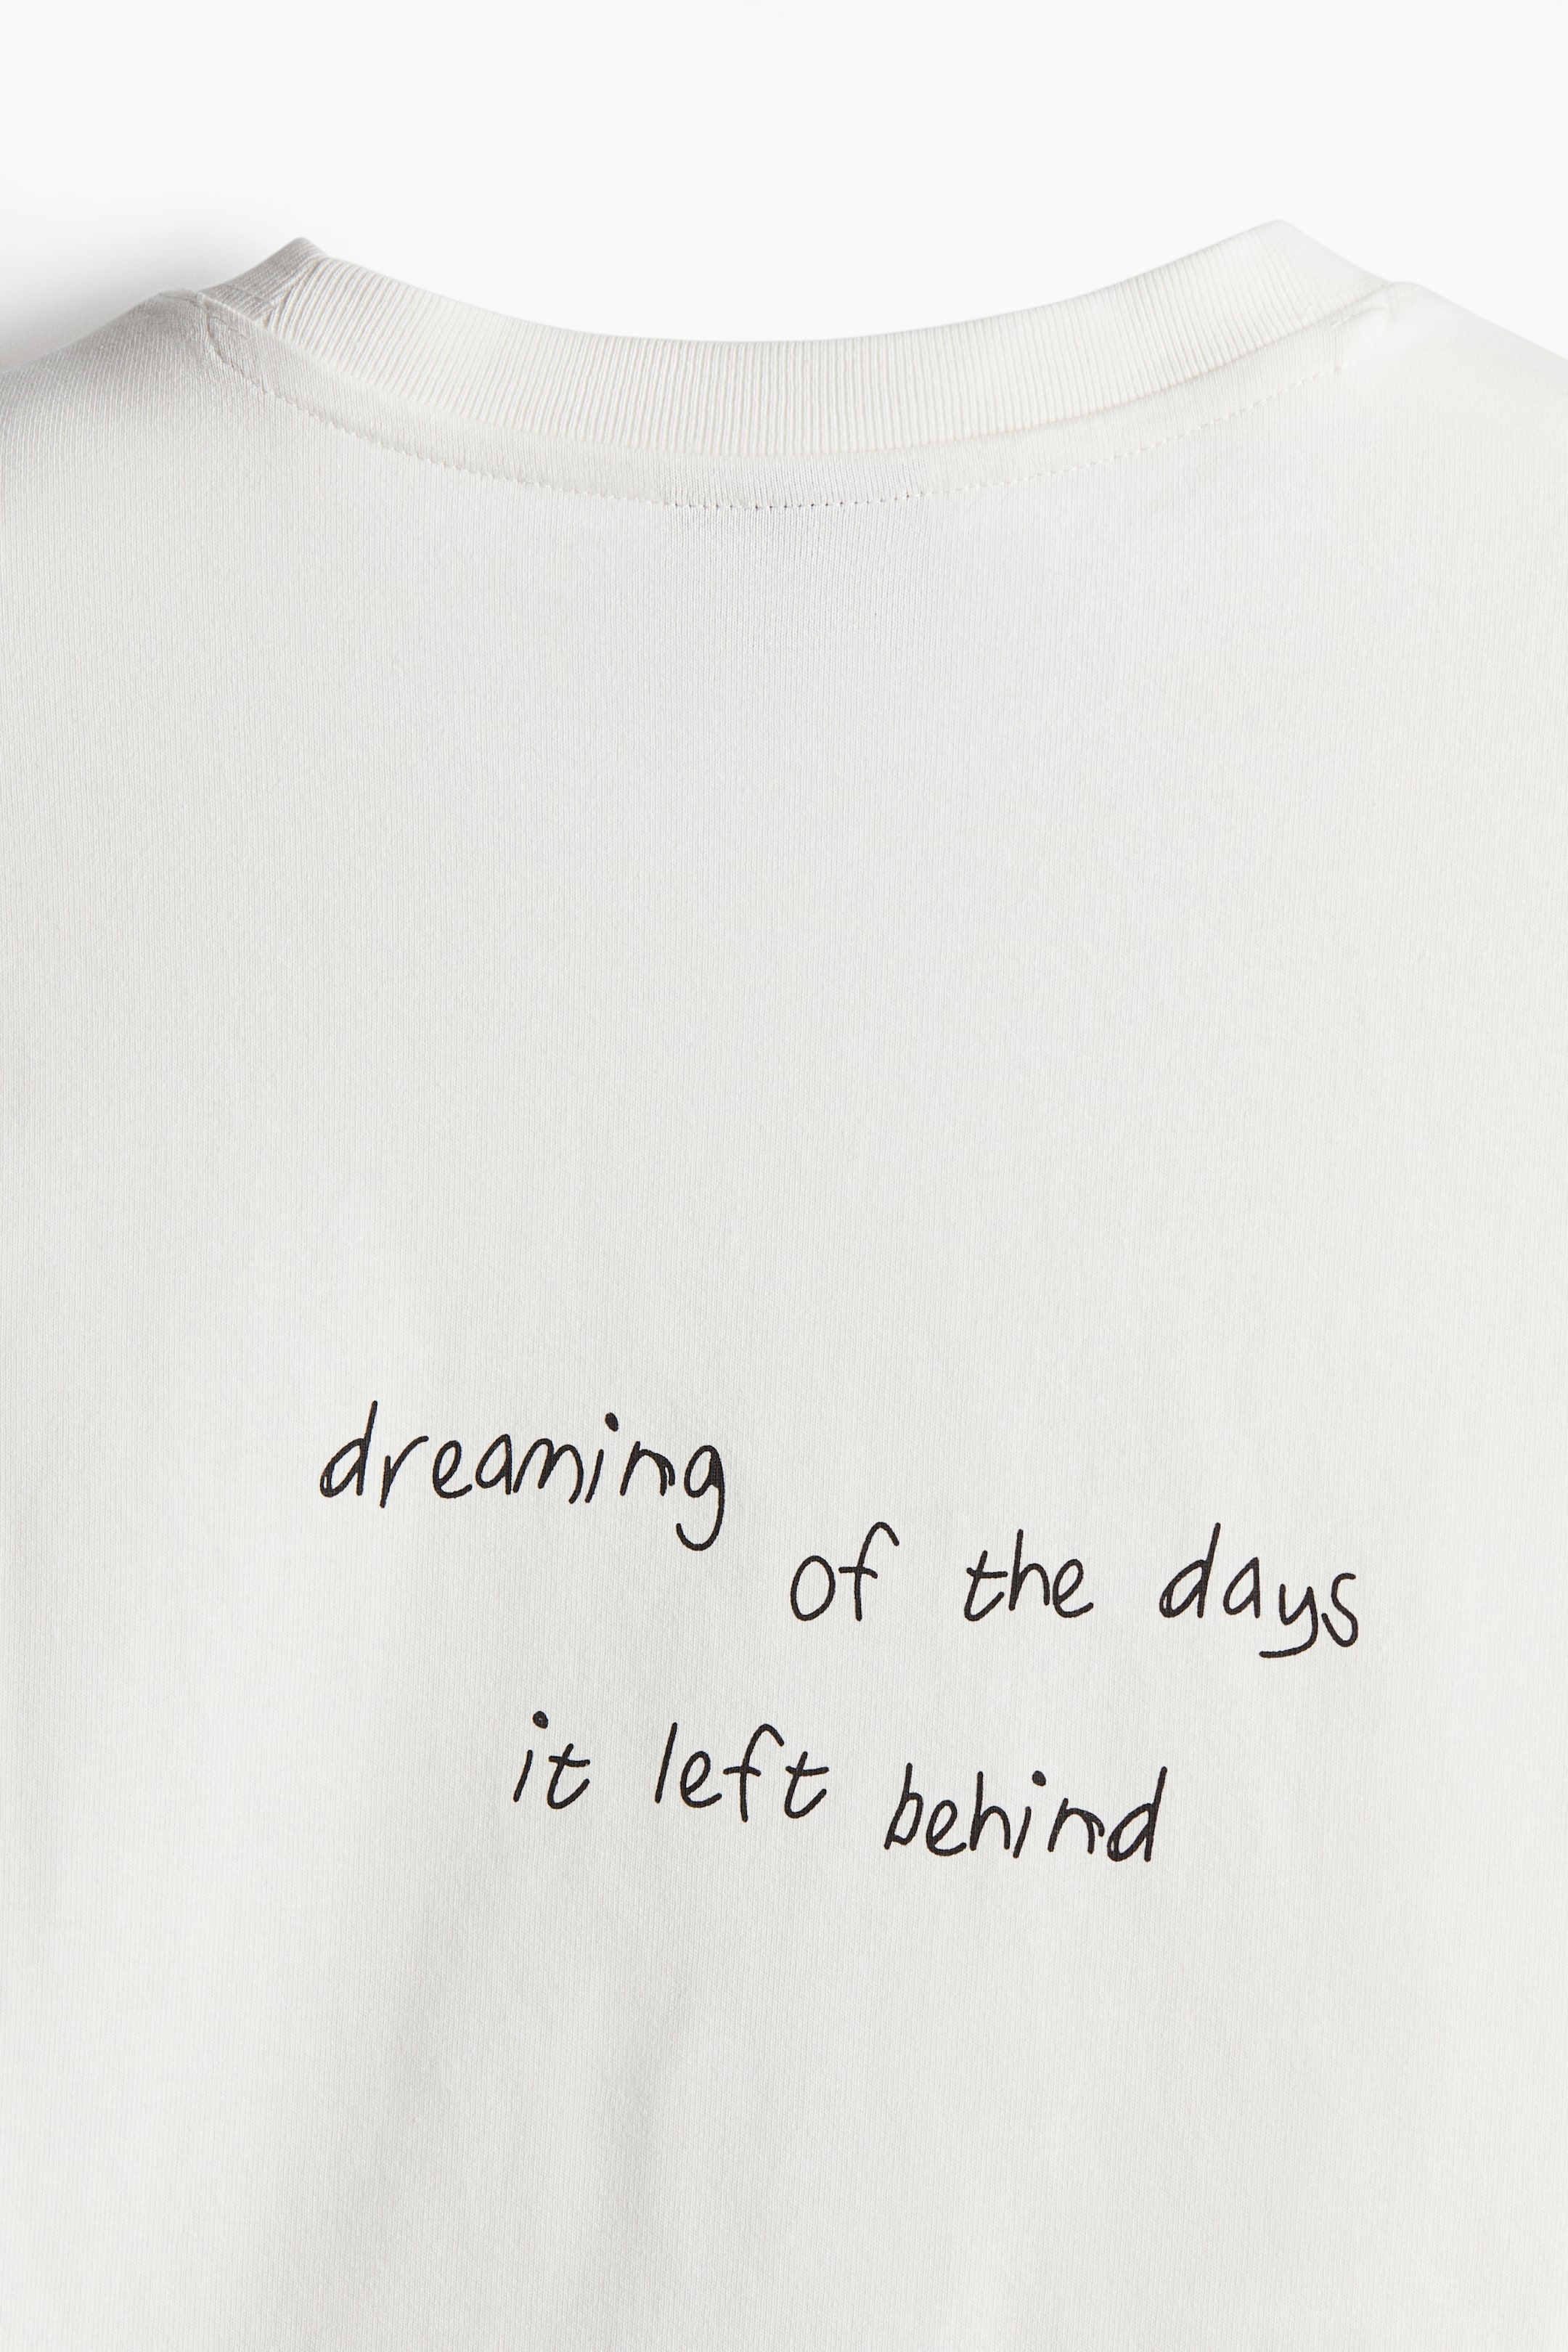 dreaming
of the days
it left behind